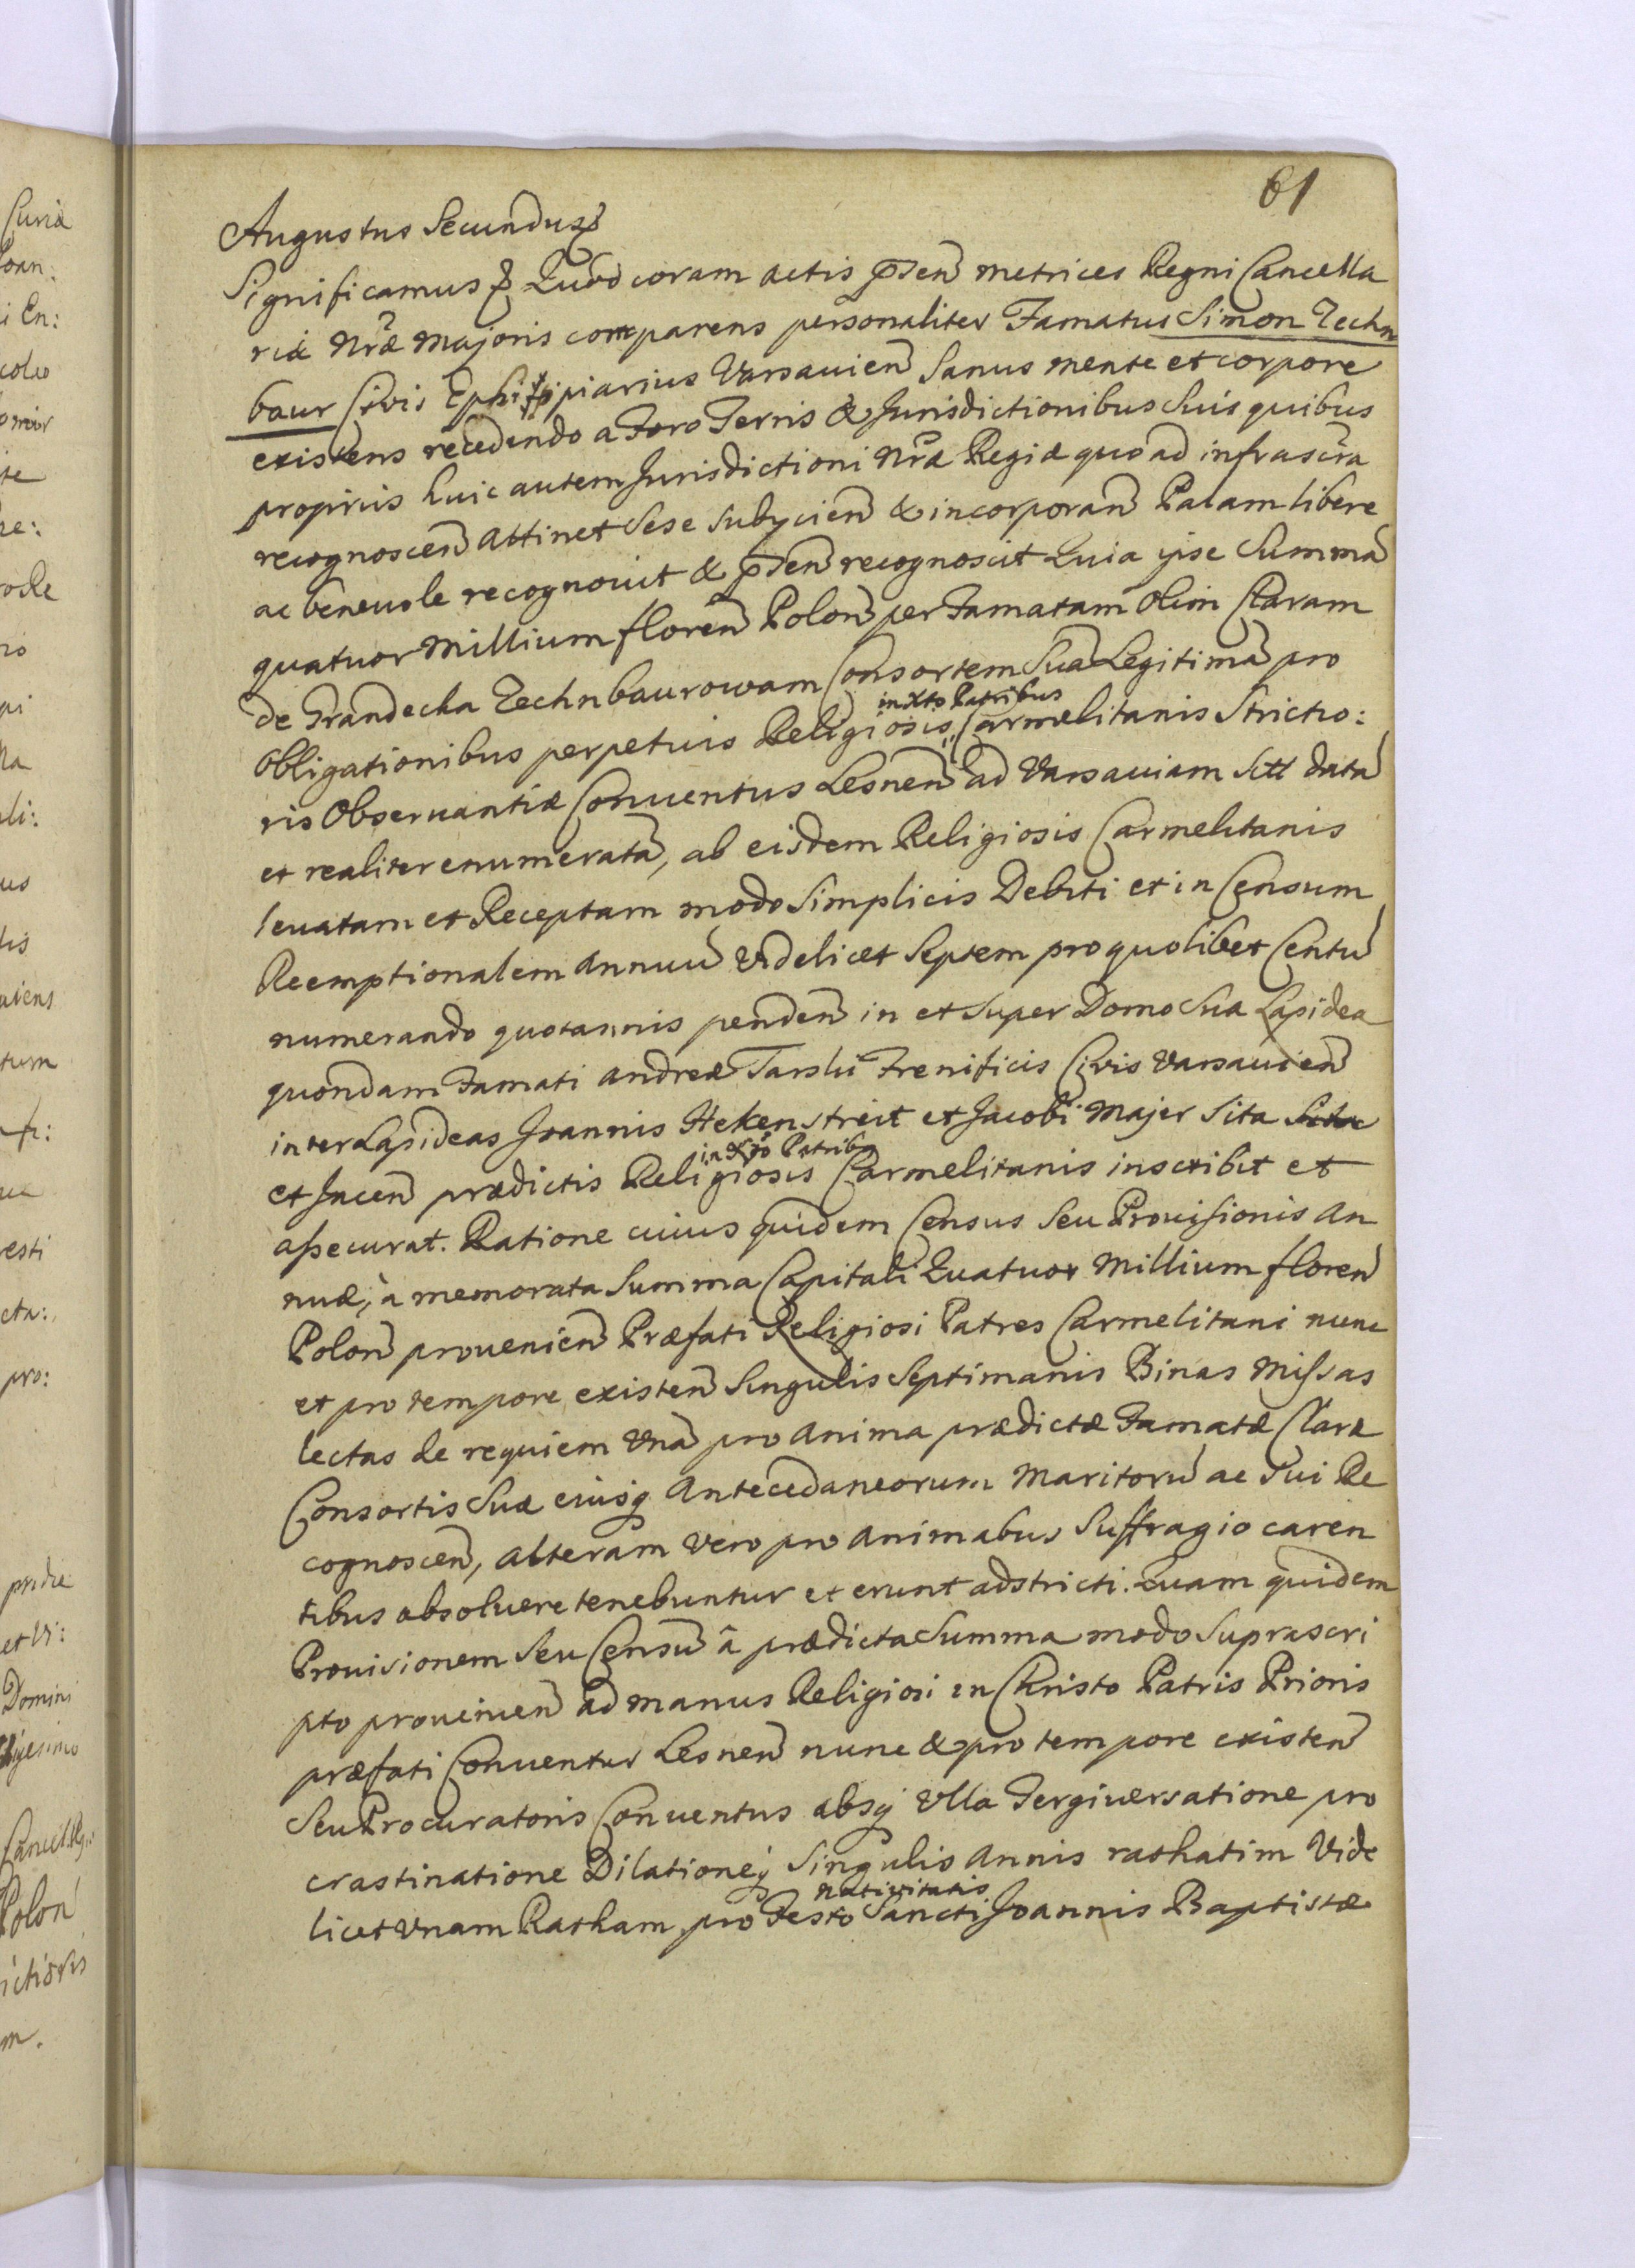 61
Augustus Secundus
Significamus & Quod coram actis pñten metrices Regni Cancella
riæ Nræ Majoris comparens personaliter Famatus Simon Zechn
baur Civis Ephippiarius Varsavien Sanus mente et corpore
existens recedendo a Foro Terris & Jurisdictionibus Suis quibus
propriis huic autem Jurisdictioni Nræ Regiæ quo ad infrascra
recognoscen attinet Sese Subijcien & incorporan Palam libere
ac benevole recognovit & pñten recognoscit Quia ipse Summã
quatuor Millium floren Polon per Famatam olim Claram
de Grandecka Zechnbaurowam Consortem Suã Legitimã pro
Obligationibus perpetuis Religiosis in Xto Patribus Carmelitanis Strictio:
ris Observantiæ Conventus Lesnen ad Varsaviam Sitt datã
et realiter enumeratã, ab eisdem Religiosis Carmelitanis
levatam et Receptam modo Simplicis Debiti et in Censum
Reemptionalem Annuũ Videlicet Septem pro quolibet Centũ
numerando quotannis penden in et Super Domo Sua Lapidea
quondam Famati Andreæ Tarski Frenificis Civis Varsavien
inter Lapideas Joannis Hekenstreit et Jacobi Majer Sita Sita
et Jacen prædictis Religiosis in Xto Patrib Carmelitanis inscribit et
assecurat. Ratione cuius quidem Census Seu Provisionis An
nuæ, à memorata Summa Capitali Quatuor Millium floren
Polon provenien Præfati Religiosi Patres Carmelitani nunc
et pro tempore existen Singulis Septimanis Binas Missas
lectas de requiem Vnã pro Anima prædictæ Famatæ Claræ
Consortis Suæ eiusq Antecedaneorum Maritorũ ac Sui Re
cognoscen, alteram Vero pro Animabus Suffragio caren
tibus absolvere tenebuntur et erunt adstricti. Quam quidem
Provisionem Seu Censũ â prædicta Summa modo Suprascri
pto provenien ad manus Religiosi in Christo Patris Prioris
præfati Conventus Lesnen nunc & pro tempore existen
Seu Procuratoris Conventus absq Vlla Tergiversatione pro
crastinatione Dilationeq Singulis Annis rathatim Vide
licet Vnam Ratham pro Festo Nativitatis Sancti Joannis Baptistæ